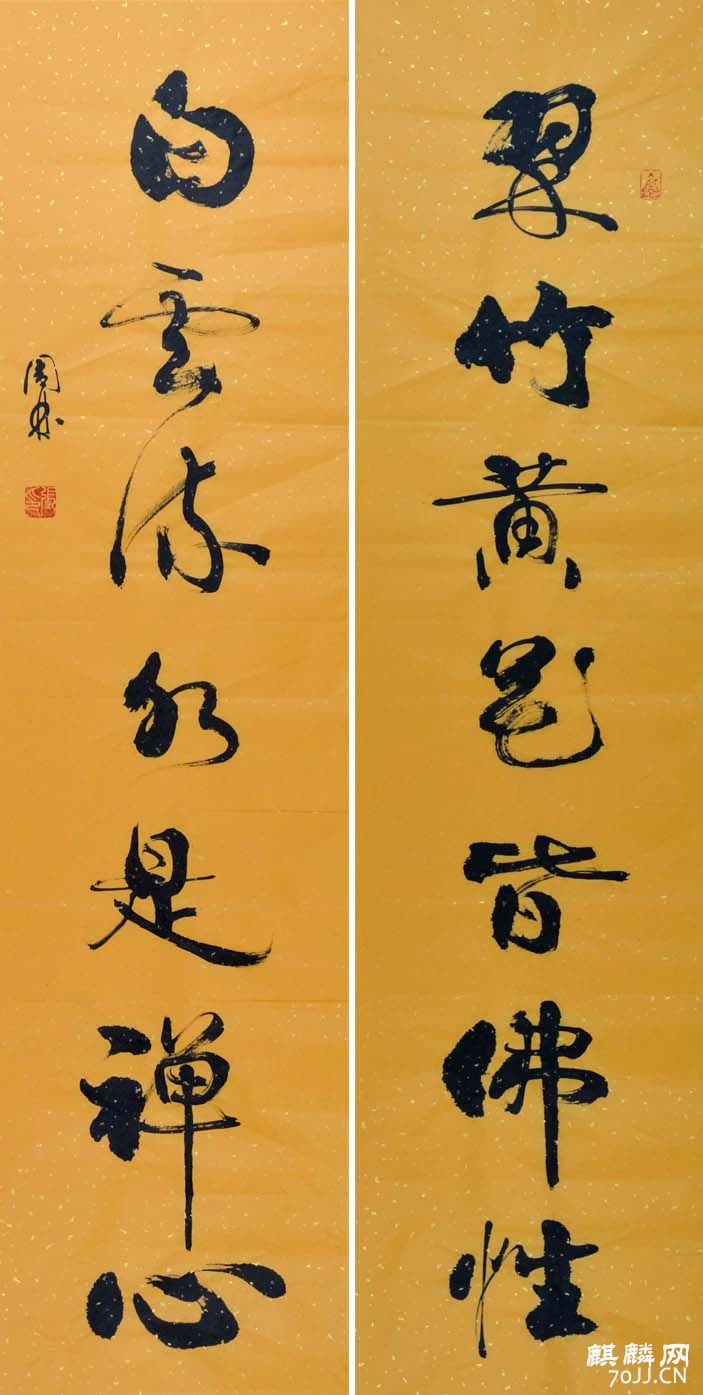 翠竹黄花皆佛性
白云流水是禅心
麒麟网
70JJ.CN